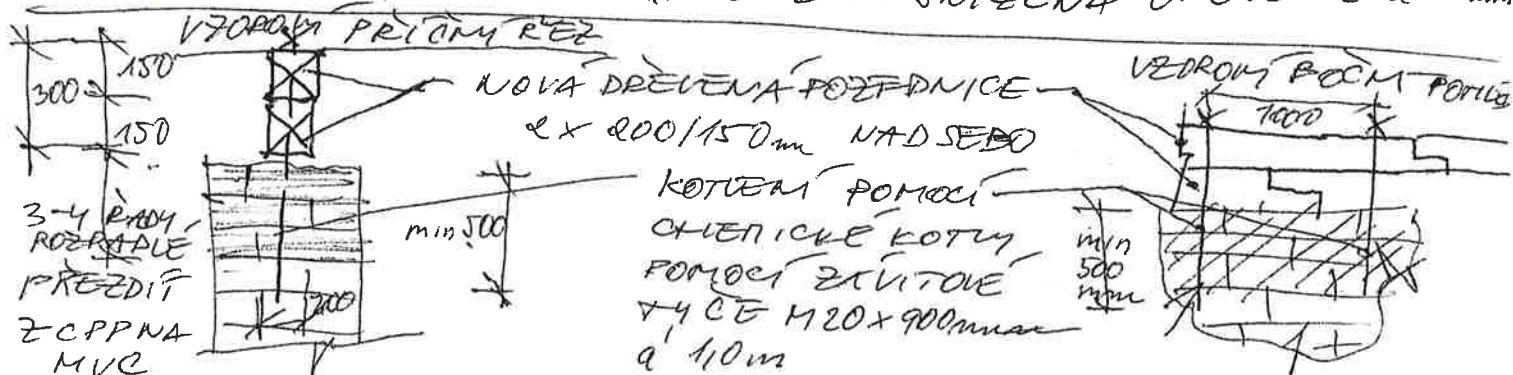 VZOROVÝ PŘÍČNÝ ŘEZ
300
150
150
3-4 ŘADY
ROZPADLÉ
PŘEZDÍT
Z CPP NA
MVC
min 500
200
NOVÁ DŘEVĚNÁ POZEDNICE
2x 200/150mm NAD SEBO
KOTVENÍ POMOCÍ
CHEMICKÉ KOTVY
POMOCÍ ZÁVITOVÉ
TYČE M20x900mm
á 1,0m
VZOROVÝ BOČNÍ POHLED
1000
min
500
mm